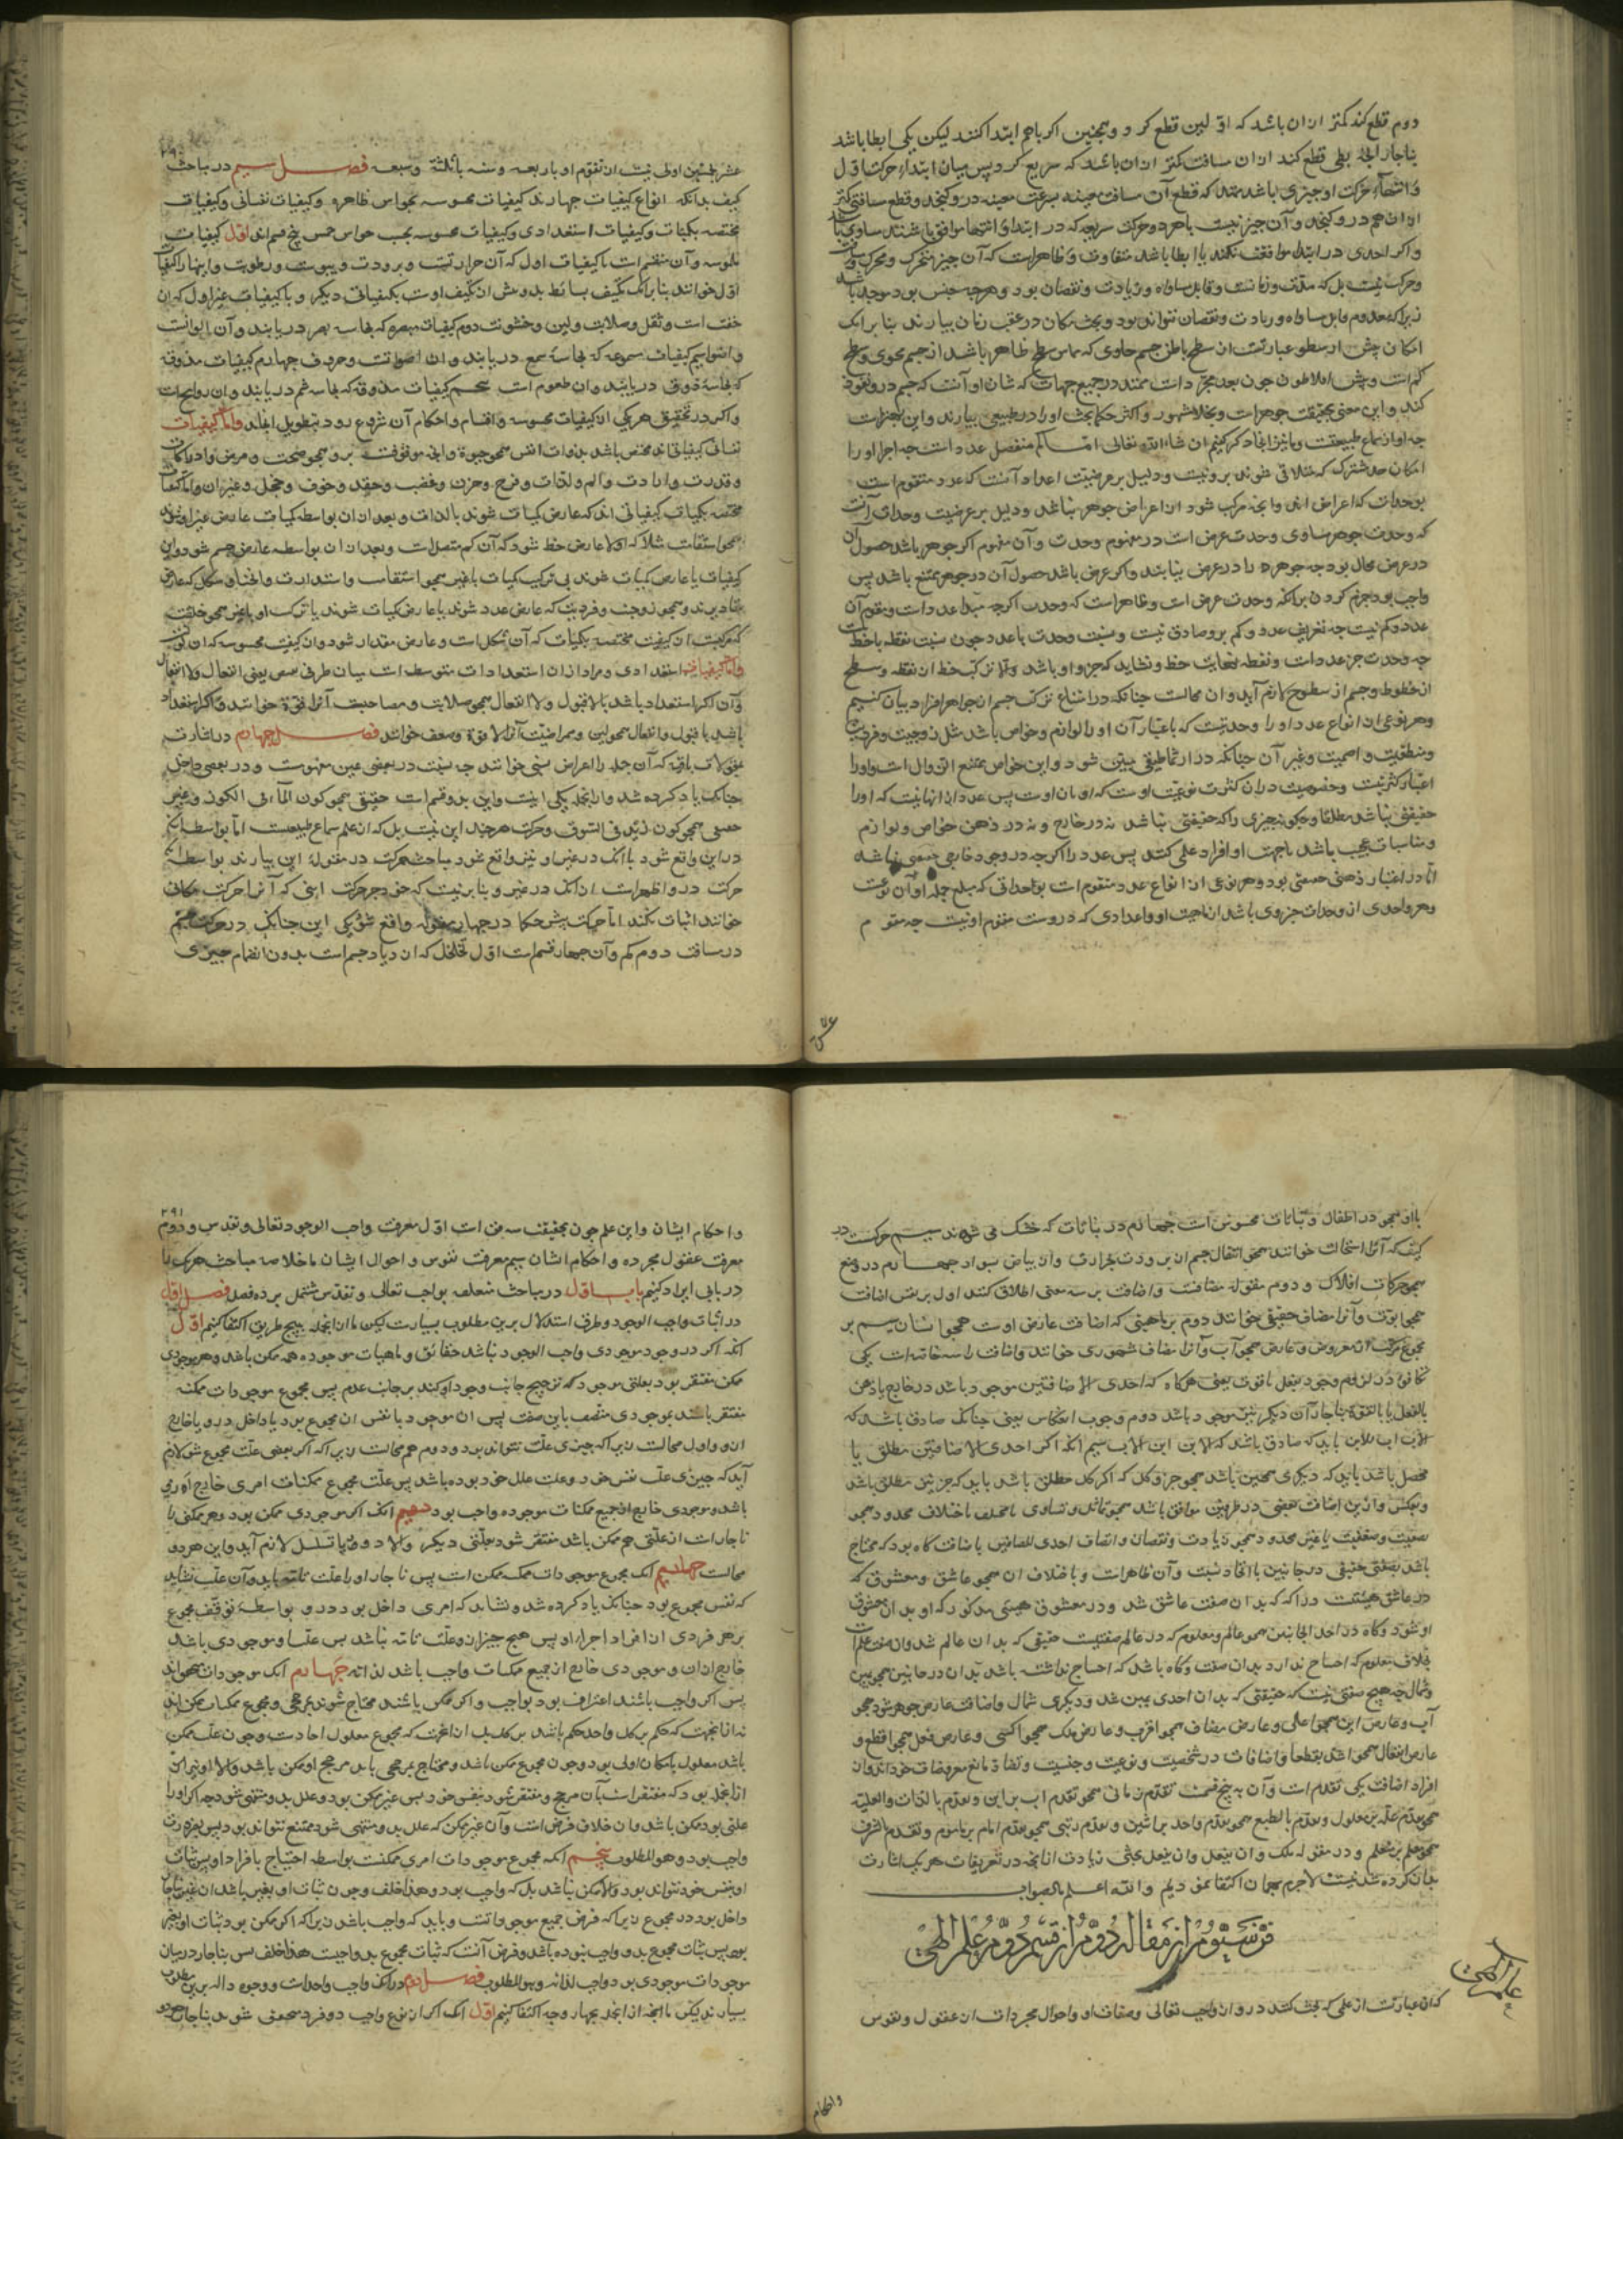 دوم قطع کند کمتر ازان باشد که اولین قطع کرد و همچنین اکر باهم ابتدا کنند لیکن یکی ابطا باشد
ناچار انچه بطی قطع کند ازان مسافت کمتر ازان باشد که سریع کرد پس میان ابتداء حرکت اول
و انتهاء حرکت او چیزی باشد ممتد که قطع آن مسافت معینه بسرعت معینه درو کنجد و قطع مسافتی کمتر
ازان هم درو کنجد و آن چیز نیست
و اکر احدی در ابتدا موافقت نکند یا ابطا باشد متفاوت و ظاهرست که آن چیز متحرک و محرک و مسافت
و حرکت نیست بل که مدت و زمانست و قابل مساواه و زیادت و نقصان بود و هرچه چنین بود موجود باشد
زیرا که معدوم قابل مساواه و زیادت و نقصان نتواند بود و بحث مکان در عقب زمان بیارند بنا برانک
امکان پیش ارسطو عبارتست از سطح باطن جسم حاوی که مماس سطح ظاهر باشد از جسم محوی و سطح
کم است و پیش افلاطون چون بعد مجرد است ممتد در جمیع جهات که شان او آنست که جسم درو نفوذ
کند و این معنی بحقیقت جوهرست و بخلا مشهور و اکثر حکما بحث او را در طبیعی بیارند
ما نیز انجا ذکر کنیم ان شاء الله تعالی اما کم منفصل عدد است چه اجزا او را
امکان حد مشترک که متلاقی شوند برو نیست و دلیل بر عرضیت اعداد آنست که عدد متقوم است
بوحدات که اعراض اند و انچه مرکب شود از اعراض جوهر نباشد و دلیل بر عرضیت وحدات آنست
که وحدت جوهر مساوی وحدت عرض است در مفهوم وحدت و آن مفهوم اکر جوهر باشد حصول آن
در عرض محال بود چه جوهر را در عرض نیابند و اکر عرض باشد حصول آن در جوهر ممتنع نباشد پس
واجب بود جزم کردن برانکه وحدت عرض است و ظاهرست که وحدت اکرچه مبدا عدد است و مقوم آن
عدد و کم نیست چه تعریف عدد و کم برو صادق نیست و نسبت وحدت با عدد چون نسبت نقطه با خط
چه وحدت جزء عدد است و نقطه نهایت خط و نشاید که جزو او باشد و الا ترکب خط از نقطه و سطح
از خطوط و جسم از سطوح لازم آید و آن محالست چنانکه در امتناع ترکب جسم از جواهر افراد بیان کنیم
و هر نوعی از انواع عدد او را وحدتیست که باعتبار آن او را لوازم و خواص باشد مثل زوجیت و فردیت
و منطقیت و اصمیت و غیر آن چنانکه در ارثماطیقی مبین شود و این خواص ممتنع الزوال است و او را
حقیقی نباشد مطلقا و چکونه چیزی را که حقیقتی نباشد نه در خارج و نه در ذهن خواص و لوازم
و مناسبات عجیب باشد
اما در اعتبار ذهنی حصصی بود و هر نوعی از انواع عدد متقوم است بوحداتی که مبلغ جمله او آن نوعست
و هر واحدی ازو وحدات جزوی باشد از ماهیت او و اعدادی که دروست مقوم او نیست چه متقوم
عشر
۲۹۰
عشر بخمستین اولی نیست از تقوم او باربعه و سته یا بثلثه و سبعه فصل سیم در مباحث
کیف بدانکه انواع کیفیات چهارند کیفیات محسوسه بحواس ظاهره و کیفیات نفسانی و کیفیات
مختصه بکمیات و کیفیات استعدادی و کیفیات محسوسه بحسب حواس خمس پنج قسم اند اول کیفیات
ملموسه و آن منقسم است با کیفیات اول که آن حرارتست و برودت و یبوست و رطوبت و اینها را کیفیات
اول خوانند بنا برانک تکیف بسایط بدو پیش از تکیف اوست بکیفیاتی دیکر و با کیفیات غیر اول که آن
خفت است و ثقل و صلابت و لین و خشونت دوم کیفیات مبصره که بحاسه بصر دریابند و آن الوانست
و اضوا سیم کیفیات مسموعه که بحاسه سمع دریابند و آن اصواتست و حروف چهارم کیفیات مذوقه
که بحاسه ذوق دریابند و آن طعوم است پنجم کیفیات که بحاسه شم دریابند و آن روایحست
و اکر در تحقیق هر یکی از کیفیات محسوسه و اقسام و احکام آن شروع رود بتطویل انجامد و اما کیفیات
نفسانی کیفیاتی اند مختص باشد بذوات انفس همچو حیوة و انچه موقوفست برو همچو صحت و مرض و ادراکات
و قدرت و ارادت و الم و لذات و فرح و حزن و غضب و حقد و خوف و خجل و غیر آن و اما کیفیات
مختصه بکمیات کیفیاتی اند که عارض کمیات شوند بالذات و بعد ازان بواسطه کمیات عارض غیر او شوند
همچو استقامت مثلا که اولا عارض خط شود که آن کم متصل است و بعد ازان بواسطه عارض جسم شود و این
کیفیات یا عارض کمیات شوند بی ترکیب کمیات با غیر همچو استقامت و استدارت و انحنا و شکل که عارض
مقادیرند و همچو زوجیت و فردیت که عارض عدد شوند یا عارض کمیات شوند با ترکب او با غیر همچو خلقت
که مرکبست از کیفیت مختصه بکمیات که آن شکل است و عارض مقدار شود و از کیفیت محسوسه که آن لونست
و اما کیفیات استعدادی و مراد ازان استعدادات متوسط است میان طرفی نقیض یعنی انفعال و لا انفعال
و آن اکر استعداد باشد بالاقبول و لا انفعال همچو صلابت و مصاحبیت آنرا قوة خوانند و اکر استعداد
باشد با قبول و انفعال همچو لین و ممراضیت آنرا لا قوة و ضعف خوانند فصل چهارم در اشارت
بمقولات باقیه که آن جمله را اعراض نسبی خوانند چه نسبت در بعضی عین مفهومست و در بعضی داخل
چنانک یاد کرده شد و ازانجمله یکی اینست و این بدو قسم است حقیقی همچو کون الماء فی الکوز و غیر
حقیقی همچو کون زید فی السوق و حرکت هرچند این نیست بل که از علم سماع طبیعیست اما بواسطه انک
در این واقع شود با انک در غیر او نیز واقع شود مباحث حرکت در مقوله این بیارند بواسطه انک
حرکت درو اظهرست ازانک در غیر و بنا برینست که خود جز حرکت اینی که آنرا حرکت مکانی
خوانند اثبات نکنند اما حرکت پیش حکما در چهار مقوله واقع شود یکی این چنانک در حرکت جسم
در مسافت دوم کم و آن چهار قسم است اول تخلخل که ازدیاد جسم است بدون انضمام چیزی
بااو همچو در اطفال و نباتات محسوس است چهارم در نباتات که خشک می شوند سیم حرکت در
کیف که آنرا استحالت خوانند همچو انتقال جسم از برودت بحرارت و از بیاض بسواد چهارم در وضع
همچو حرکات افلاک و دوم مقوله مضافست و اضافت بر سه معنی اطلاق کنند اول بر نفس اضافت
همچو ابوت و آنرا مضاف حقیقی خوانند دوم بر ماهیتی که اضافت عارض اوست همچو انسان سیم بر
مجموع مرکب از معروض و عارض همچو آب و آنرا مضاف مشهوری خوانند و اضافت را سه خاصه است یکی
تکافی در لزوم وجود بفعل یا قوت یعنی هرکاه که احدی الاضافتین موجود باشد در خارج یا ذهن
بالفعل یا بالقوة ناچار آن دیکر نیز موجود باشد دوم وجوب انعکاس یعنی چنانک صادق باشد که
الاب اب للابن باید که صادق باشد که الابن ابن الاب سیم انکه اکر احدی الاضافتین مطلق یا
محصل باشد باید که دیکری همچنین باشد همچو جزو و کل که اکر کل مطلق باشد باید که جزء نیز مطلق باشد
و بعکس و ازین اضافت بعضی در طرفین موافق باشد همچو تماثل و تساوی
باشد بمعنی حقیقی در جانبین با اتحاد نسبت و آن ظاهرست و با خلاف آن همچو عاشق و معشوق که
در عاشق هیئتیست دراکه که بدان صفت عاشق شد و در معشوق هیئتی مدرکه که او بدان معشوق
او شود و کاه در احد الجانبین همچو عالم و معلوم که در عالم صفتیست حقیقی که بدان عالم شد و آن صفت علم است
بخلاف معلوم که احتیاج ندارد بدان صفت و کاه باشد که احتیاج نداشته باشد بدان در جانبین همچو یمین
و شمال چه هیچ صفتی نیست حقیقتی که بدان احدی یمین شد و دیکری شمال و اضافت عارض جوهر شود همچو
اب و عارض این همچو اعلی و عارض مضاف همچو اقرب و عارض ملک همچو اکسی و عارض فعل همچو اقطع و
عارض انفعال همچو اشد تقطعا و اضافات در شخصیت و نوعیت و جنسیت و تضاد تابع معروضات خود اند و از
افراد اضافت یکی تقدم است و آن به پنج قسمست تقدم زمانی همچو تقدم اب بر ابن و تقدم بالذات و العلیه
همچو تقدم علت بر معلول و تقدم بالطبع همچو تقدم واحد بر اثنین و تقدم رتبی همچو تقدم امام بر ماموم و تقدم بالشرف
همچو معلم بر متعلم و در مقوله ملک و ان یفعل و ان ینفعل بحثی زیادت ازانچه در تعریفات هر یک اشارت
بدان کرده شد نیست لاجرم بهمان اکتفا نمودیم والله اعلم بالصواب
فن سیوم از مقاله دوم از قسم دوم علم الهی
علم الهی
که آن عبارتست از علمی که بحث کنند درو از واجب تعالی و صفات او و احوال مجردات از عقول و نفوس
واحکام
۲۹۱
و احکام ایشان و این علم چون بحقیقت سه فن است اول معرفت واجب الوجود تعالی و تقدس و دوم
معرفت عقول مجرده و احکام ایشان سیم معرفت نفوس و احوال ایشان ما خلاصه مباحث هریک را
در بابی ایراد کنیم باب اول در مباحث متعلقه بواجب تعالی و تقدس مشتمل بر ده فصل فصل اول
در اثبات واجب الوجود و طرق استدلال برین مطلوب بسیارست لیکن ما ازانجمله بپنج طریق اکتفا کنیم اول
انکه اکر در وجود موجودی واجب الوجود نباشد حقائق و ماهیات موجوده همه ممکن باشد و هر موجودی
ممکن مفتقر بود بعلتی موجود که ترجیح جانب وجود او کند بر جانب عدم پس مجموع موجودات ممکنه
مفتقر باشد بموجودی متصف باین صفت پس آن موجود یا نفس آن مجموع بود یا داخل درو یا خارج
ازو و اول محالست زیرا که چیزی علت نفس خود نتواند بود و دوم هم محالست زیرا که اکر بعضی علت مجموع شود لازم
آید که چیزی علت نفس خود و علت علل خود بوده باشد پس علت مجموع ممکنات امری خارج ازو
باشد و موجودی خارج از جمیع ممکنات موجوده واجب بود دوم انک اکر موجودی ممکن بود و هر ممکنی را
ناچارست از علتی هم ممکن باشد مفتقر شود بعلتی دیکر و الا دور یا تسلسل لازم آید و این هر دو
محالست انک مجموع موجودات ممکنه ممکن است پس ناچار او را علت تامه باید و آن علت نشاید
که نفس مجموع بود چنانک یاد کرده شد و نشاید که امری داخل بود درو بواسطه توقف مجموع
بر هر فردی از افراد اجزاء او پس هیچ چیز ازو علت تامه نباشد پس علت او موجودی باشد
خارج ازان و موجودی خارج از جمیع ممکنات واجب باشد لذاته چهارم انک موجودات
پس اکر واجب باشند اعتراف بود بواجب و اکر ممکن باشند محتاج شوند بمرجحی و مجموع ممکنات ممکن اند
نه ازانجهت که حکم بر کل واحد حکم باشد بر کل بل ازانجهت که مجموع معلول احادست و چون علت ممکن
باشد معلول بامکان اولی بود و چون مجموع ممکن باشد و محتاج بمرجحی باید مرجح او ممکن نباشد و الا او نیز
ازانجمله بود که مفتقر است بآن مرجح و مفتقر شود بنفس خود
علتی بود ممکن باشد و آن خلاف فرض است
واجب بود و هو المطلوب پنجم انکه مجموع موجودات امری ممکنست بواسطه احتیاج بافراد او پس ثبات
او بنفس خود نتواند بود و الا ممکن نباشد بل که واجب بود و هذا خلف و چون ثبات او بغیر باشد آن غیر ناچار
داخل بود در مجموع زیرا که فرض جمیع موجوداتست و باید که واجب باشد زیرا که اکر ممکن بود ثبات او بغیر
بود پس ثبات مجموع بدو واجب نبوده باشد و فرض آنست که ثبات مجموع بدو واجبست هذا خلف پس ناچار درمیان
موجودات موجودی بود واجب لذاته و هو المطلوب فصل دوم درانک واجب واحدست و وجوه داله برین مطلوب
بسیارند لیکن ما ازانجمله بچهار وجه اکتفا کنیم اول انک اکر از نوع واجب دو فرد متحقق شوند ناچار